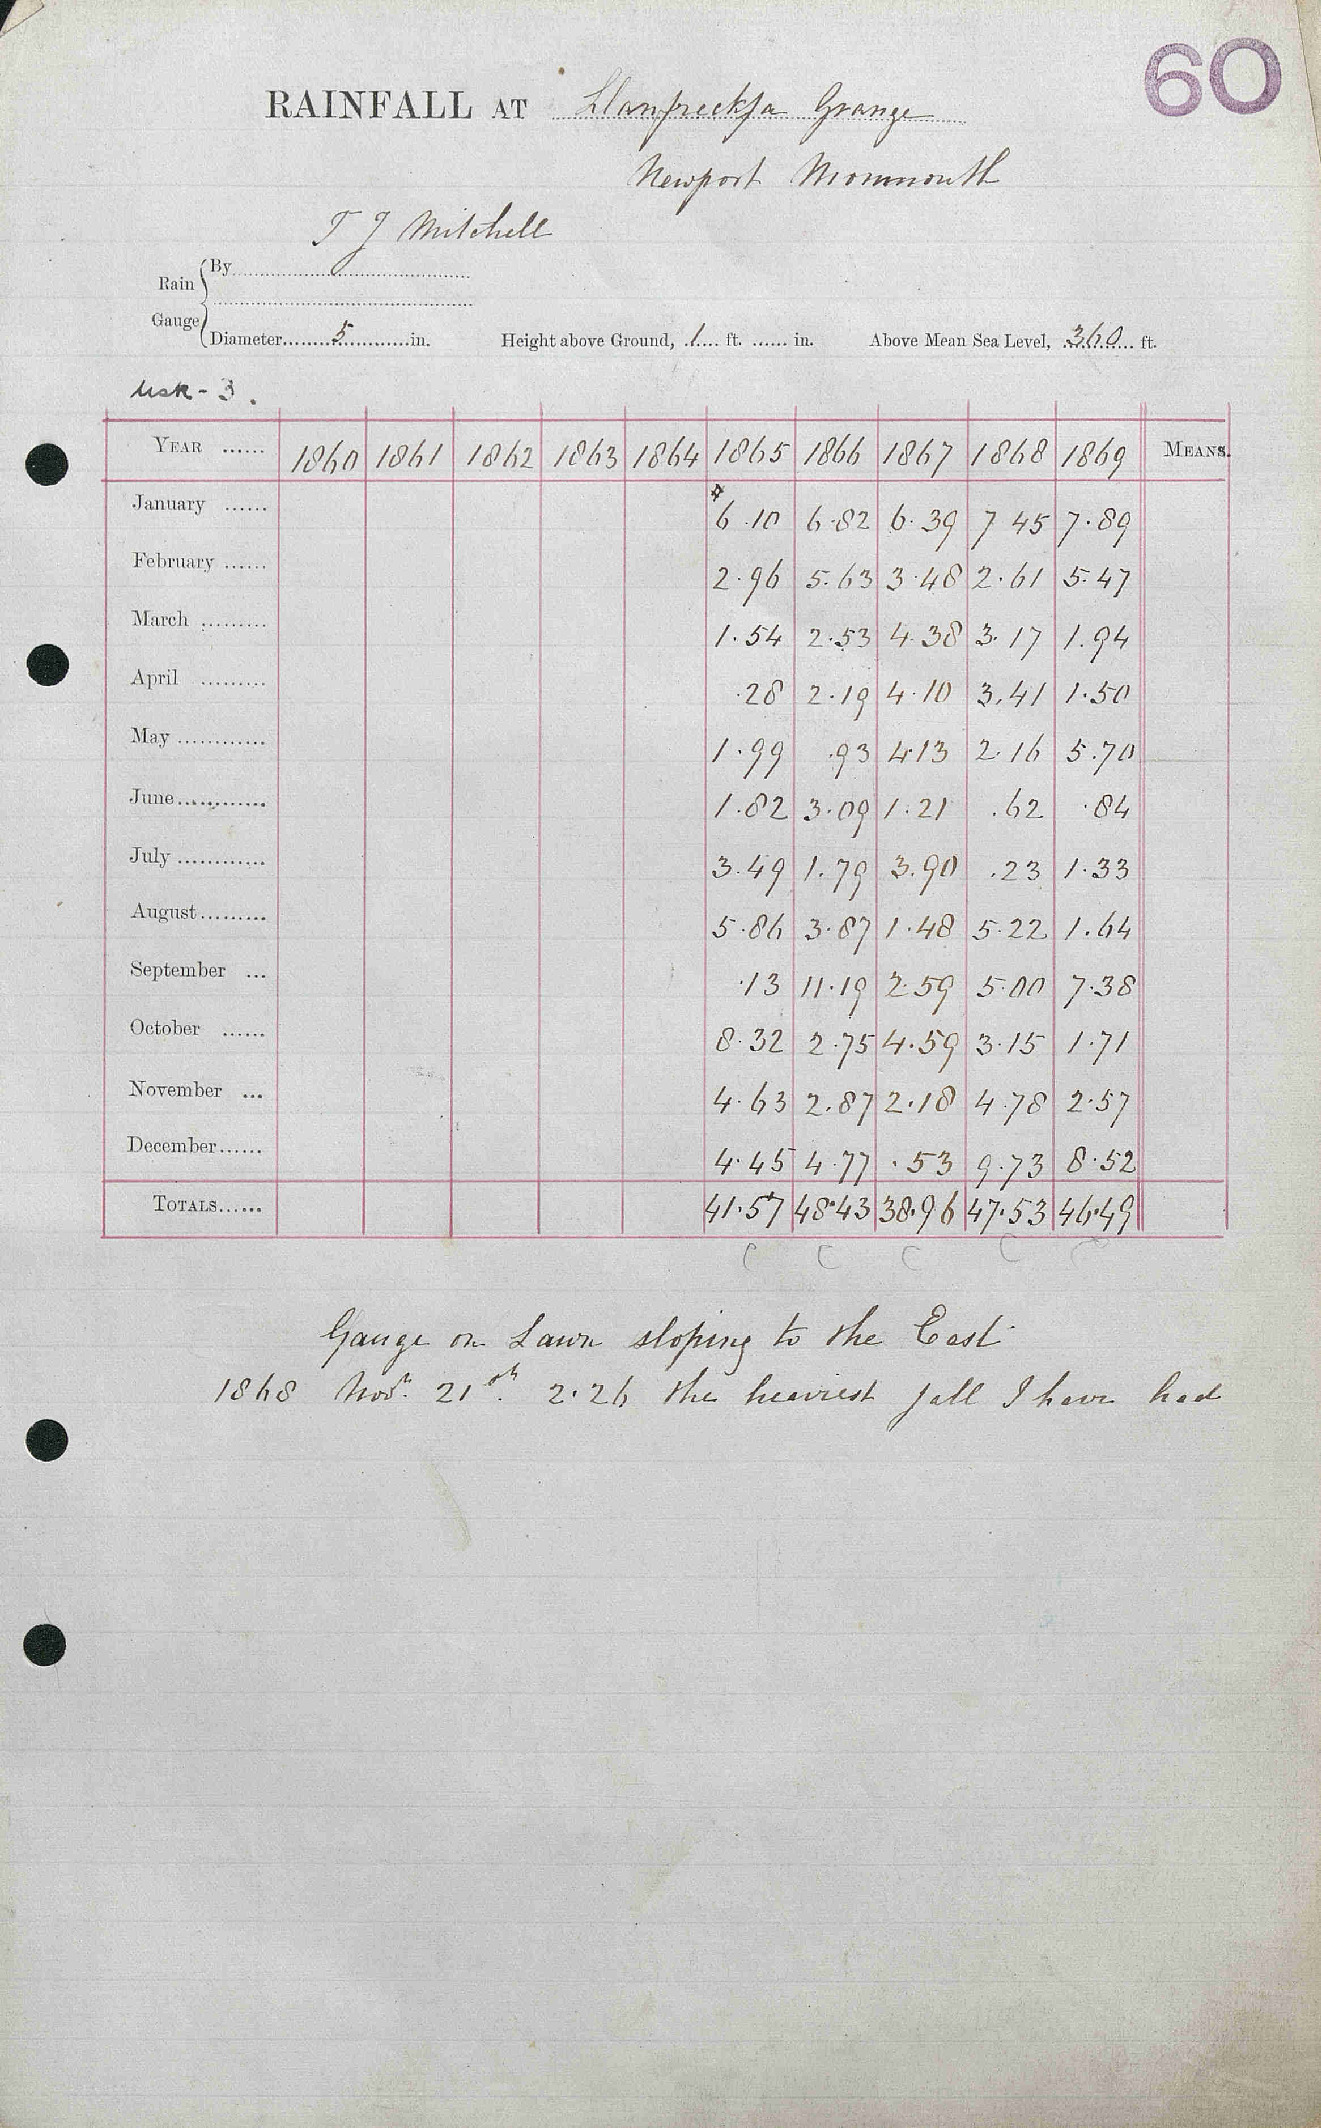 60
RAINFALL AT Llanfreckfa Grange
Newport Monmouth
T J Mitchell
Rain Gauge { By
Diameter 5 in. Height above Ground, 1 ft. in. Above Mean Sea Level, 360 ft.
Usk - 3.
YEAR 1860 1861 1862 1863 1864 1865 1866 1867 1868 1869 MEANS.
January 6.10 6.82 6.39 7 45 7.89
February 2.96 5.63 3.48 2.61 5.47
March 1.54 2.53 4.38 3.17 1.94
April .28 2.19 4.10 3.41 1.50
May 1.99 .93 4.13 2.16 5.70
June 1.82 3.09 1.21 .62 .84
July 3.49 1.79 3.90 .23 1.33
August 5.86 3.87 1.48 5.22 1.64
September .13 11.19 2.59 5.00 7.38
October 8.32 2.75 4.59 3.15 1.71
November 4.63 2.87 2.18 4.78 2.57
December 4.45 4.77 .53 9.73 8.52
TOTALS 41.57 48.43 38.96 47.53 46.49
C C C C C
Gauge on Lawn sloping to the East
1868 Novr. 21st. 2.26 the heaviest fall I have had